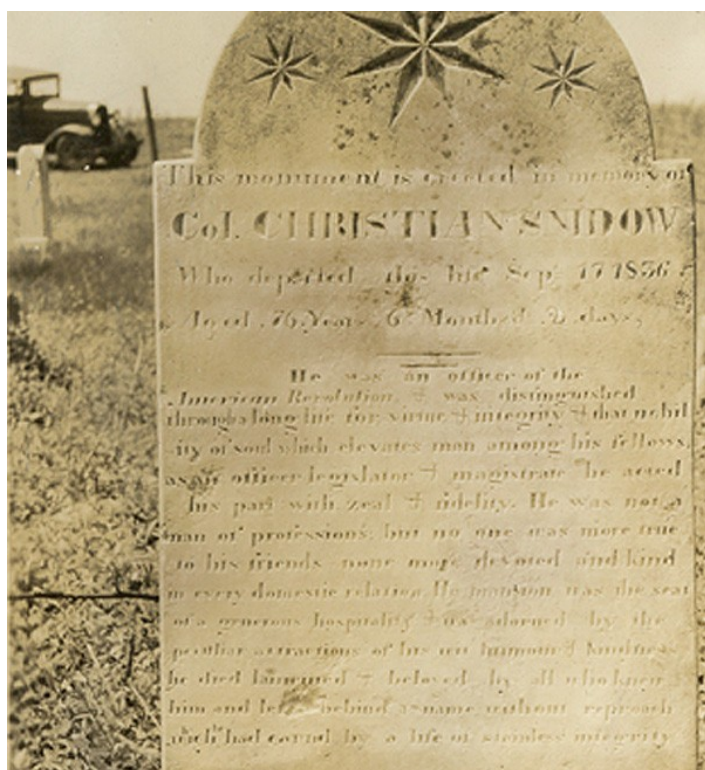 This monument is erected in memory of
Col. CHRISTIAN SNIDOW
Who departed this life Sep. 17 1836
Aged 76 Years 6 Months & 2 days,
He was an officer of the
American Revolution, & was distinguished
through a long life for virtue & integrity & that nobil
ity of soul which elevates man among his fellows,
as an officer legislator & magistrate he acted
his part with zeal & fidelity. He was not a
man of professions, but no one was more true
to his friends none more devoted and kind
in every domestic relation. He mansion was the seat
of a generous hospitality & was adorned by the
peculiar attractions of his wit humour & kindness
he died lamented & beloved by all who knew
him and left behind a name without reproach
which had earnd by a life of stainless integrity